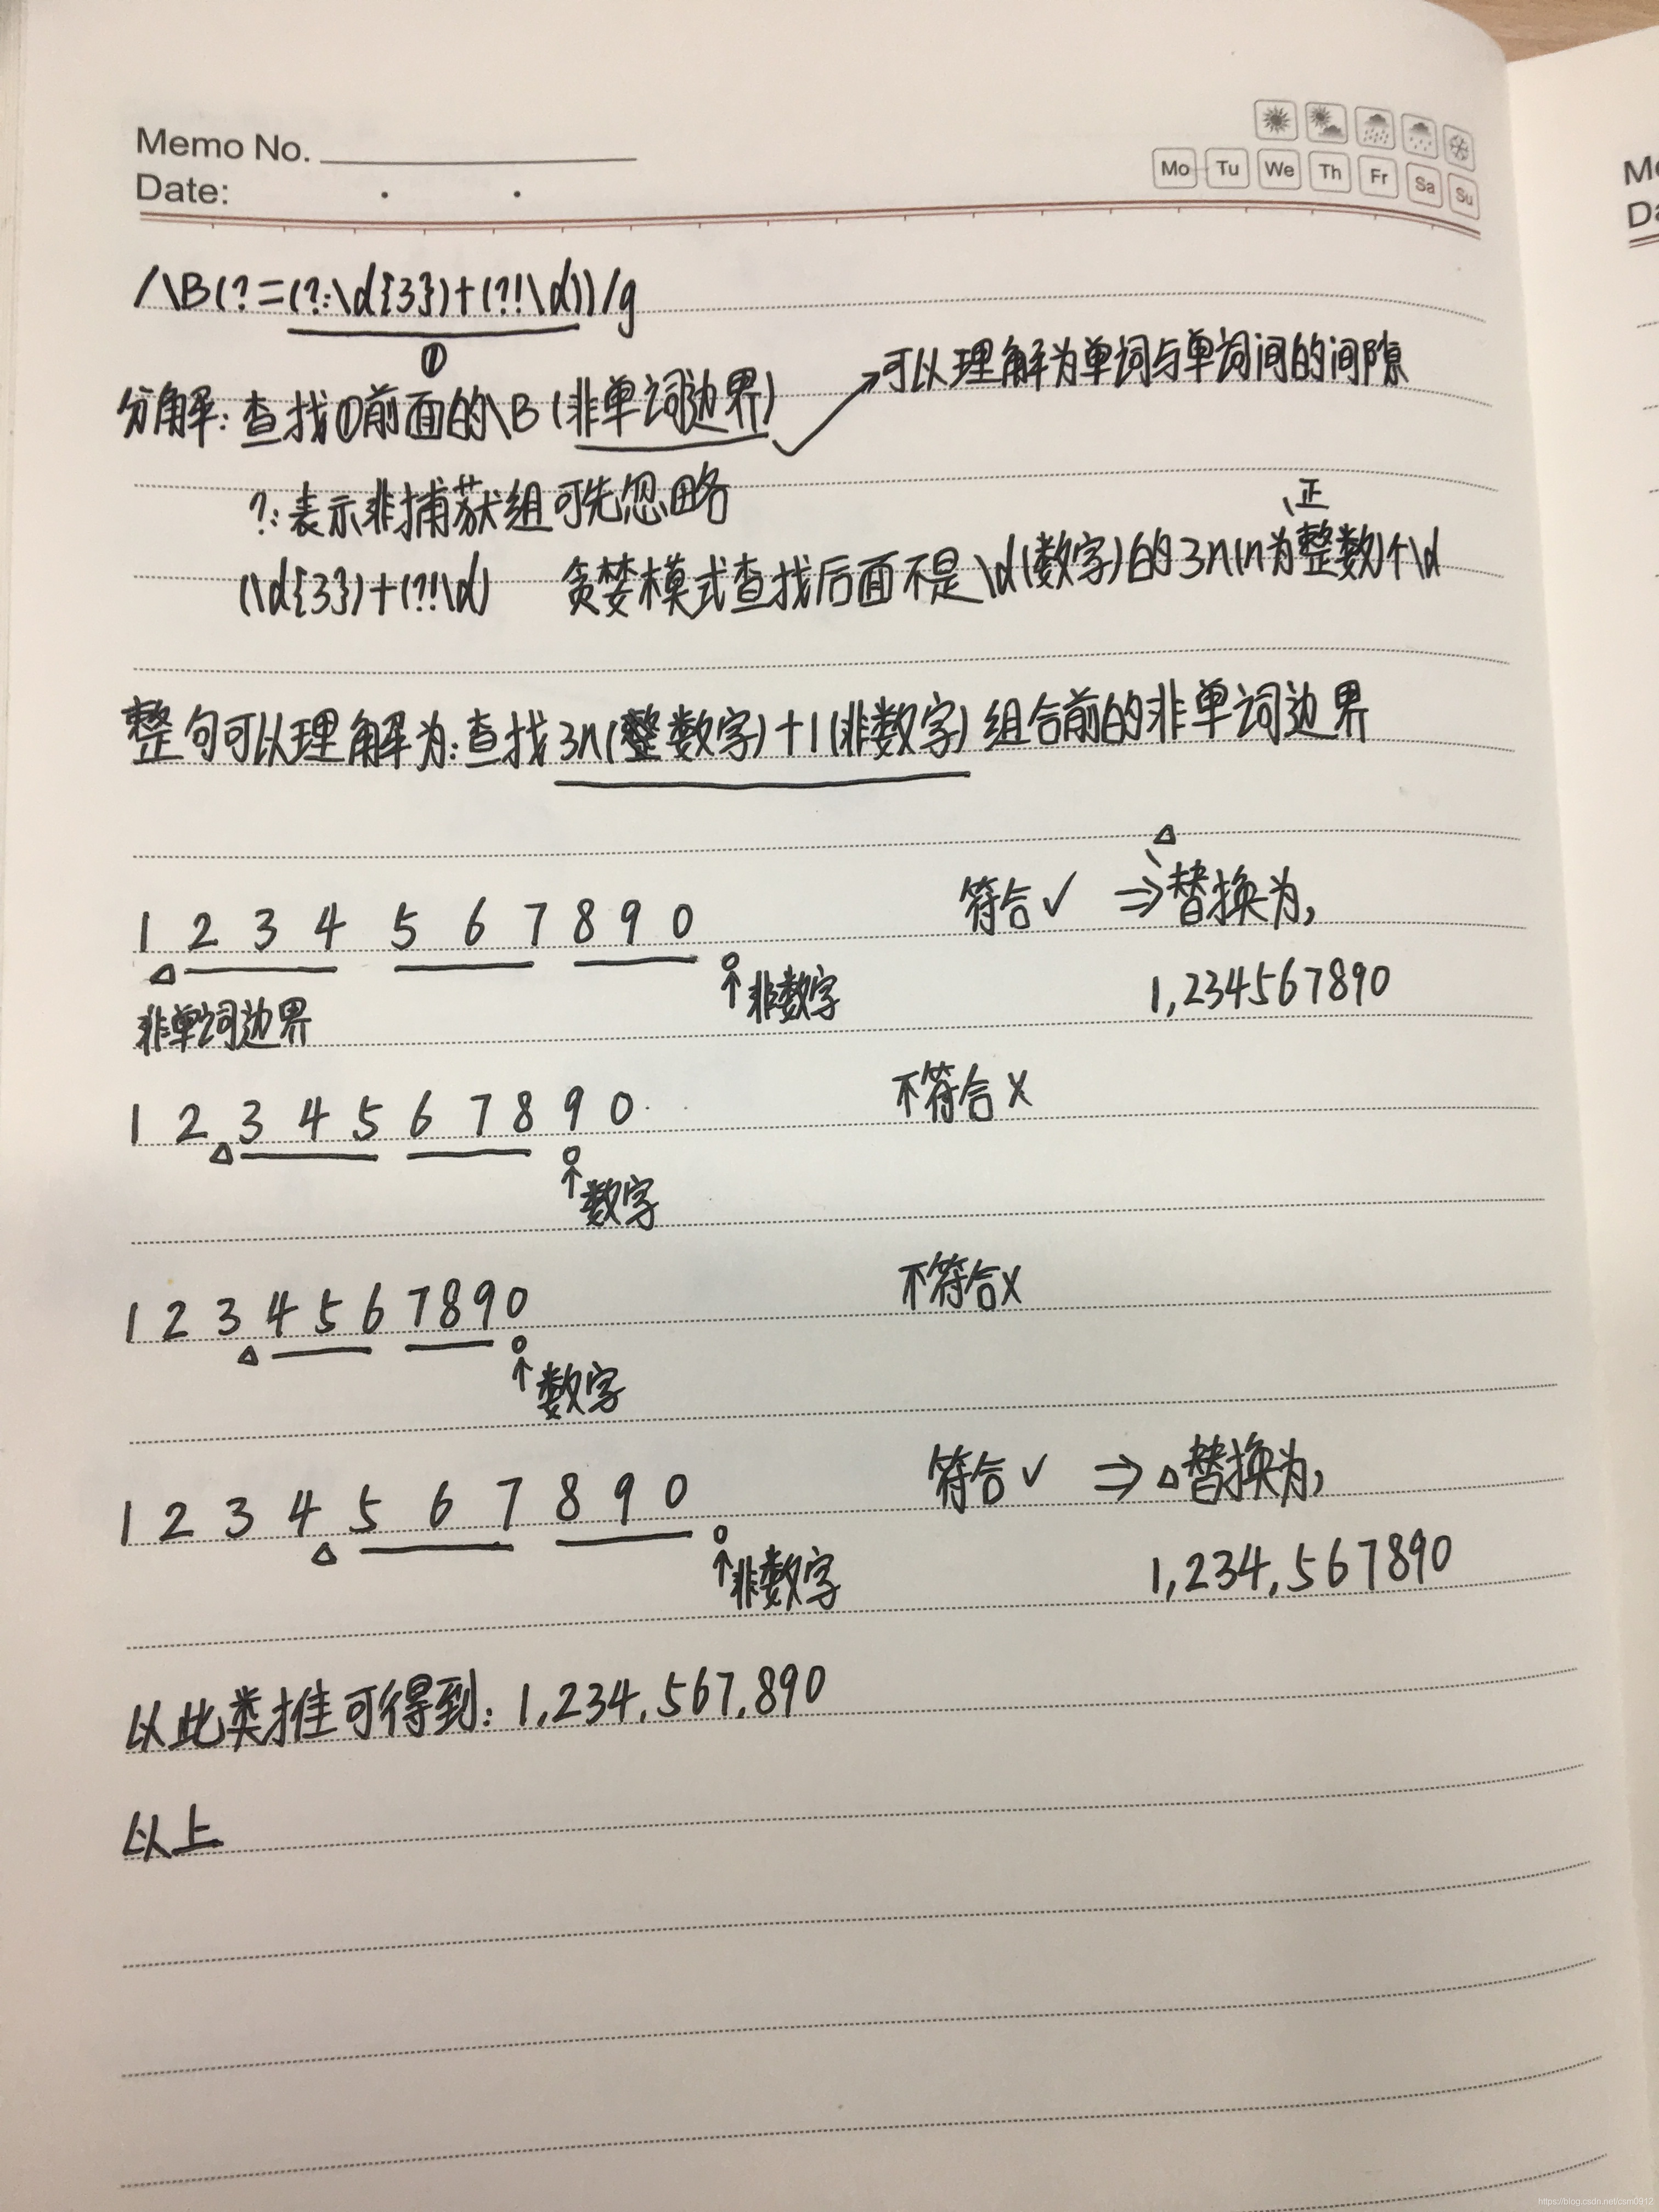 Memo No.
Date: . .
Mo Tu We Th Fr Sa Su
/\B(?=(?:\d{3})+(?!\d))/g
①
可以理解为单词与单词间的间隙
分解：查找①前面的\B（非单词边界）
?:表示非捕获组可先忽略
正
(\d{3})+(?!\d) 贪婪模式查找后面不是\d(数字)的3n(n为整数)个\d
整句可以理解为：查找3n(整数字)+1(非数字)组合前的非单词边界
△
1 2 3 4 5 6 7 8 9 0 符合✓ ⇒替换为,
△ 非数字 1,234567890
非单词边界
1 2 3 4 5 6 7 8 9 0 不符合X
△ 数字
1 2 3 4 5 6 7 8 9 0 不符合X
△ 数字
1 2 3 4 5 6 7 8 9 0 符合✓ ⇒△替换为,
△ 非数字 1,234,567890
以此类推可得到：1,234,567,890
以上
Me
Da
https://blog.csdn.net/csm0912